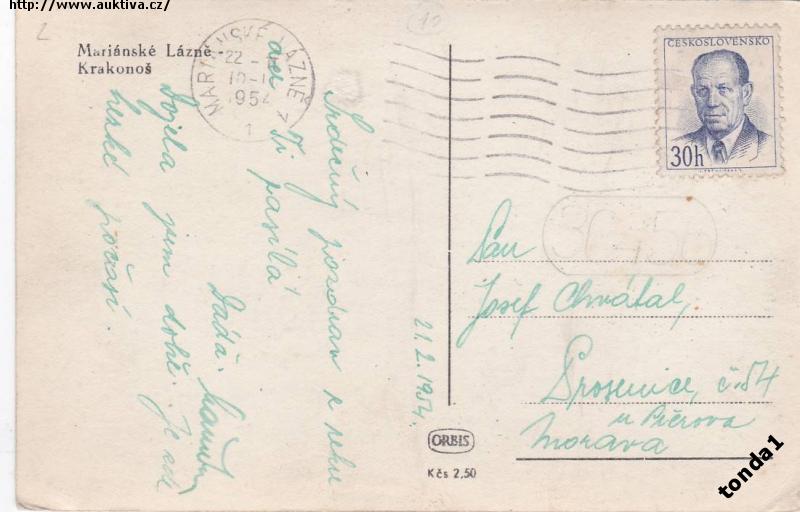 http://www.auktiva.cz/
2
10
Mariánské Lázně -
Krakonoš
MARIÁNSKÉ LÁZNĚ 7
22 -
1954
1
ČESKOSLOVENSKO
30h
Srdečný pozdrav z
Ti posílá
Dáda.
Dojela jsem dobře. Je zde
hezké počasí.
21.2.1954.
Pan
Josef Chvátal,
Prosenice, č.54
u Přerova
Morava
ORBIS
Kčs 2,50
tonda1